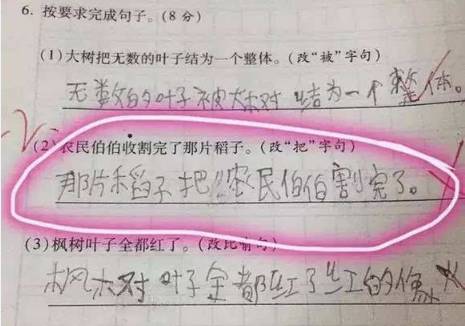 6. 按要求完成句子。(8分)
(1)大树把无数的叶子结为一个整体。(改“被”字句)
无数的叶子被大树结为一个整体。
-2
(2)农民伯伯收割完了那片稻子。(改“把”字句)
那片稻子把农民伯伯割完了。
(3)枫树叶子全都红了。(改比喻句)
枫树叶子全都红了红的像火